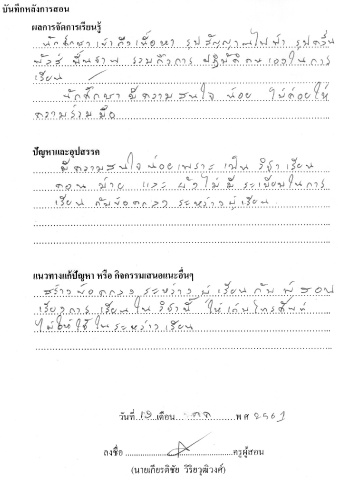 บันทึกหลังการสอน
ผลการจัดการเรียนรู้
นักศึกษาเข้าถึงเนื้อหา รูปสัญญาณไฟฟ้า รูปคลื่น
พัลส์ พื้นฐาน รวมถึงการ ปฏิบัติตนเองในการ
เรียน
นักศึกษา มีความสนใจ น้อย ไม่ค่อยให้
ความร่วมมือ
ปัญหาและอุปสรรค
มีความสนใจน้อยเพราะ เป็น วิชา เรียน
ตอน บ่าย และ ยังไม่มี ระเบียบในการ
เรียน กับข้อตกลง ระหว่างผู้เรียน
แนวทางแก้ปัญหา หรือ กิจกรรมเสนอแนะอื่นๆ
สร้างข้อตกลง ระหว่าง ผู้เรียน กับ ผู้สอน
เรื่องการ เรียนใน วิชานี้ ให้เก็บโทรศัพท์
ไม่ให้ใช้ในระหว่างเรียน
วันที่ 19 เดือน ตค พ ศ 2561
ลงชื่อ ครูผู้สอน
(นายเกียรติชัย วีริยวุฒิวงศ์)